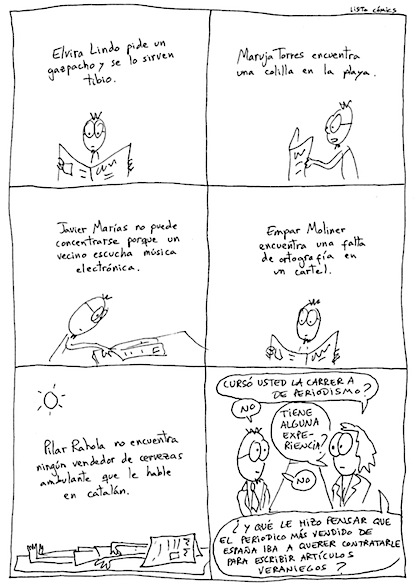 LISTO CÓMICS
Elvira Lindo pide un
gazpacho y se lo sirven
tibio.
Maruja Torres encuentra
una colilla en la playa.
Javier Marías no puede
concentrarse porque un
vecino escucha música
electrónica.
Empar Moliner
encuentra una falta
de ortografía en
un cartel.
Pilar Rahola no encuentra
ningún vendedor de cervezas
ambulante que le hable
en catalán.
CURSÓ USTED LA CARRERA
DE PERIODISMO?
NO
TIENE
ALGUNA
EXPE-
RIENCIA?
NO
¿Y QUÉ LE HIZO PENSAR QUE
EL PERIODICO MÁS VENDIDO DE
ESPAÑA IBA A QUERER CONTRATARLE
PARA ESCRIBIR ARTÍCULOS
VERANIEGOS?